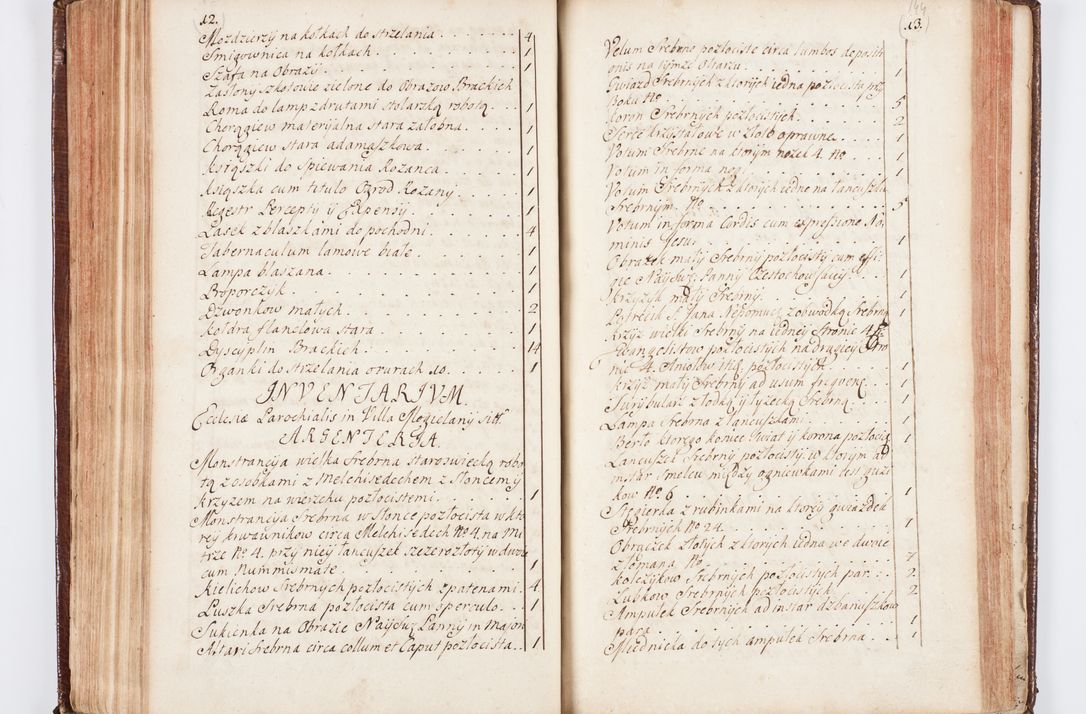 12.
Mozdzierzy na kołkach do strzelania 4
Smigownica na kołkach 1
Szafa na Obrazy 1
Zasłony szkotowe zielone do Obrazow Brackich
Roma do lamp z drutami stolarską robotą 1
Chorągiew materyalna stara załobna 1
Chorągiew stara adamaszkowa 1
Ksiąszki do Spiewania Rozanca 1
Ksiąszka cum titulo Ogrod Rozany 1
Regestr Percepty y Expensy 1
Lasek z blaszkami do pochodni 4
Tabernaculum lamowe białe 1
Lampa blaszana 1
Proporczyk 1
Dzwonkow małych 2
Kołdra flanelowa stara 1
Dyscyplin Brackich 14
Organki do strzelania o rurach 10. 1
INVENTARIVM.
Ecclesiæ Parochialis in Villa Mogielany sitt:
ARGENTERIA.
Monstrancyja wielka Srebrna staroswiecką robo
tą z osobkami z Melchisedechem z Słoncem y
krzyzem na wierzchu pozłocistemi 1
Monstrancyja Srebrna w Słonce pozłocista w kto
rey krwawnikow circa Melchisedech No 4 na Mi
trze No 4. przy niey łancuszek szczerozłoty w dwoie
cum Nummismate 1
Kielichow Srebrnych pozłocistych z patenami 4
Puszka Srebrna pozłocista cum operculo 1
Sukienka na Obrazie Nayswi: Panny in Majori
Altari Srebrna circa collum et Caput pozłocista 1
144
13.
Velum Srebrne pozłociste circa lumbos depositi
onis na tymze Ołtarzu 1
Gwiazd Srebrnych z ktorych iedna pozłocista
Boku No 5
Koron Srebrnych pozłocistych 2
Serce krzyształowe w złoto oprawne 1
Votum Srebrne na ktorym nozek 4. No 1
Votum in forma nog 1
Votum Srebrnych z ktorych iedne na łancuszku
Srebrnym No 5
Votum in forma Cordis cum expressione No,
minis Jesu 1
Obrazek mały Srebrny pozłocisty cum effi-
gie Nayswi: Panny Częstochowskiey 1
Krzyzyk mały Srebrny 1
S. Jana Nepomuc: z obwodką Srebrną 1
Krzyz wielki Srebrny na iedney stronie 4
Ewangelistow pozłocistych na drugiey Stro
nie 4. Aniołow pozłocistych 1
Krzyz mały Srebrny ad usum frequens 1
Turybularz z łodką y łyzecką Srebrną 1
Lampa Srebrna z łancuszkami 1
Berło ktorego koniec Swiat y korona pozłocis: 1
Łancuszek Srebrny pozłocisty w ktorym ad
instar między ogniewkami iest guzi
kow No 6 1
z rubinkami na ktorey gwiazdek
Srebrnych No 24 1
Obrączek złotych z ktorych iedna we dwoie
złomana No 7
Kolczykow Srebrnych pozłocistych par 2
Lubkow Srebrnych pozłocistych 2
Ampułek Srebrnych ad instar dzbanuszkow
para 1
Miednicka do tych ampułek Srebrna 1